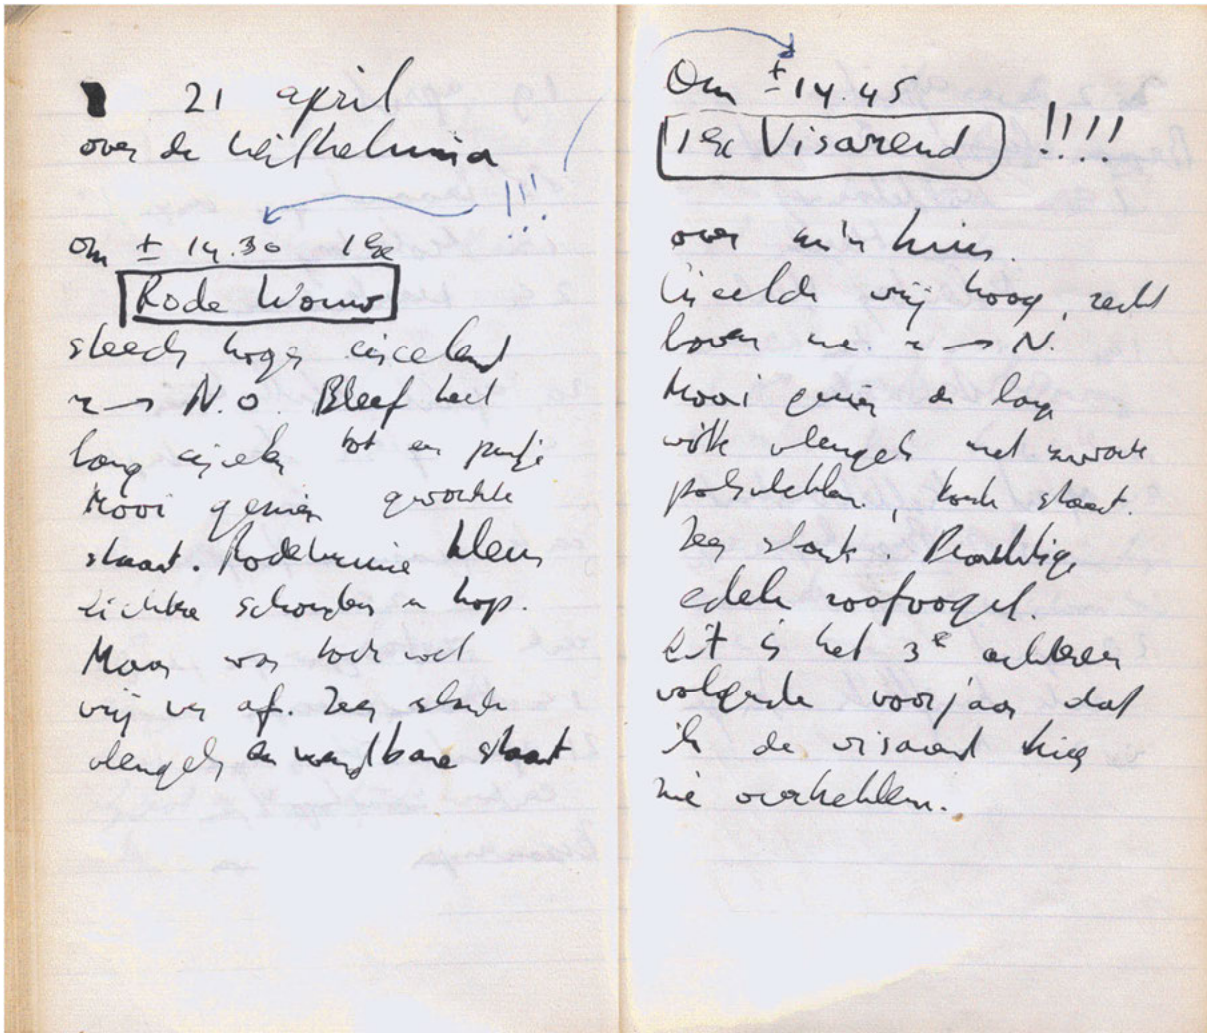 21 april
over de Wilhelmina
!!!
om ± 14.30 1 ex
Rode Wouw
steeds hoger circelend
→ N.O. Bleef heel
lang circelen tot een puntje
Mooi gezien gevorkte
staart. Roodbruine kleur
lichtere schouders en kop.
Maar was toch wel
vrij ver af. Zeer slanke
vleugels en wendbare staart
Om ± 14.45
1 ex Visarend !!!!
over m'n huis.
Circelde vrij hoog, recht
boven me. → N.
Mooi gezien de lange
witte vleugels met zwarte
polsvlekken, korte staart.
Zeer slank. Prachtige
edele roofvogel.
Dit is het 3e achtereen
volgende voorjaar dat
ik de visarend hier
zie overtrekken.